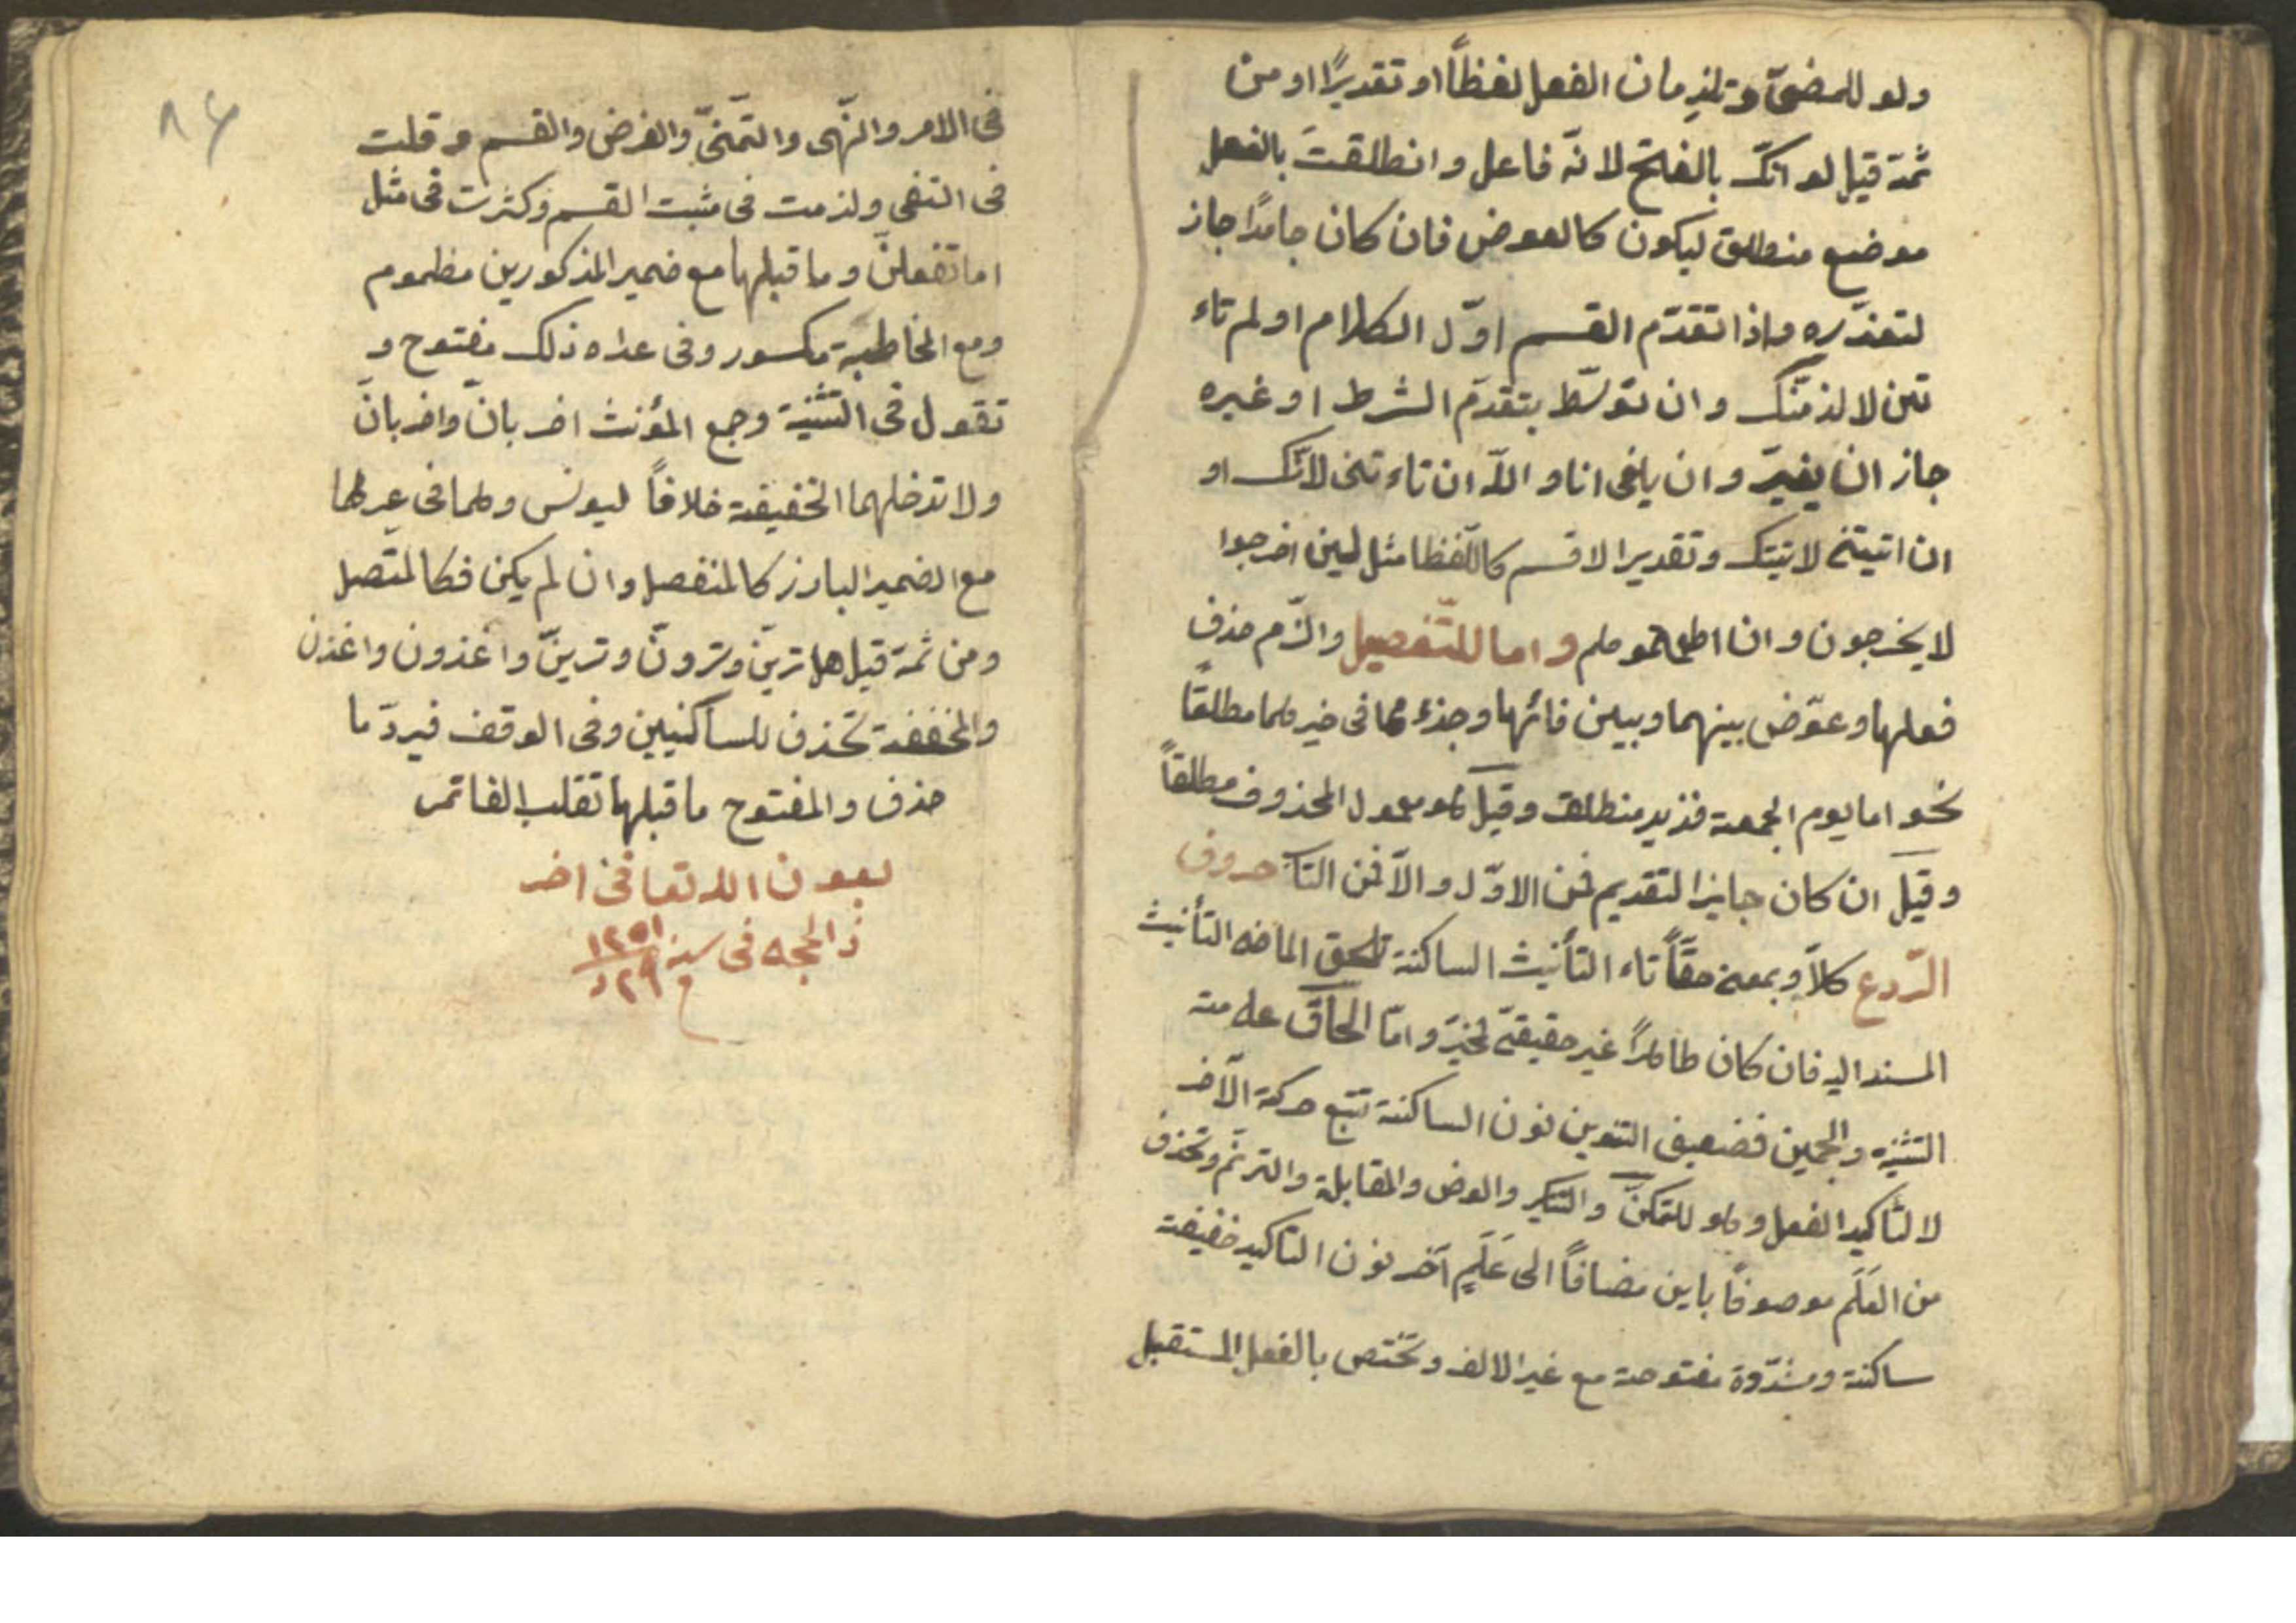 ولو للمضىّ وتلزمان الفعل لفظاً او تقديرًا او من
ثمة قيل لو انّك بالفتح لانّه فاعل وانطلقتَ بالفعل
موضع منطلق ليكون كالعوض فان كان جامدًا جاز
لتعذّره واذا تقدّم القسم اوّل الكلام او لم تاء
تين لا لذمّنك وان توسّط بتقدّم الشرط او غيره
جاز ان يغيرّ وان يلغى انا واللّه ان تاء تنى لآتك او
ان اتيتنى لاتيتك وتقديرا لاقسم كاللّفظا مثل لين اخرجوا
لا يخرجون وان اطعتموهم واما للتّفصيل والزّم حذف
فعلها وعوّض بينهما وبين فائها وجزء مما فى خيرهما مطلقًا
نحو اما يوم الجمعة فزيد منطلق وقيل هو معمول المحذوف مطلقاً
وقيل ان كان جايزا لتقديم فمن الاوّل والّا فمن الثا حروف
الرّدع كلاّ وبمعنى حقّاً تاء التأنيث الساكنة تلحق الماضى التأنيث
المسند اليه فان كان ظاهراً غير حقيقىّ فخيرّ وامّا الحاق علامة
التثنية والجمعين فضعيف التنوين نون الساكنة تتبع حركة الآخر
لا لتّاكيد الفعل وهو للتمكنّ والتنكير والعوض والمقابلة والترنّم وتحذف
من العَلَم موصوفاً باين مضافاً الى عَلَمٍ آخر نون التاكيد خفيفة
ساكنة ومشدّوة مفتوحة مع غير الالف وتختص بالفعل المستقبل
٨٤
فى الامر والنّهى والتّمنّى والعرض والقسم و قلت
فى النفى ولزمت فى مثبت القسم وكثرت فى مثل
اما تفعلنّ وما قبلها مع ضمير المذكورين مظموم
ومع المخاطبة مكسور وفى عداه ذلك مفتوح و
تقول فى التثنية وجمع المؤنث اضربانّ واضربانّ
ولا تدخلهما الخفيفة خلافاً ليونس وهما فى غيرهما
مع الضمير البارز كالمنفصل وان لم يكن فكالمتّصل
ومن ثمة قيل هل ترينّ وترونّ وترينّ واغذون واغذن
والمخففة تحذف للساكنيين وفى الوقف فيردّ ما
حذف والمفتوح ما قبلها تقلب الفا تمر
بعون الله تعا فى اخر
ذالحجه فى سنه ١٢٥١
٢٩